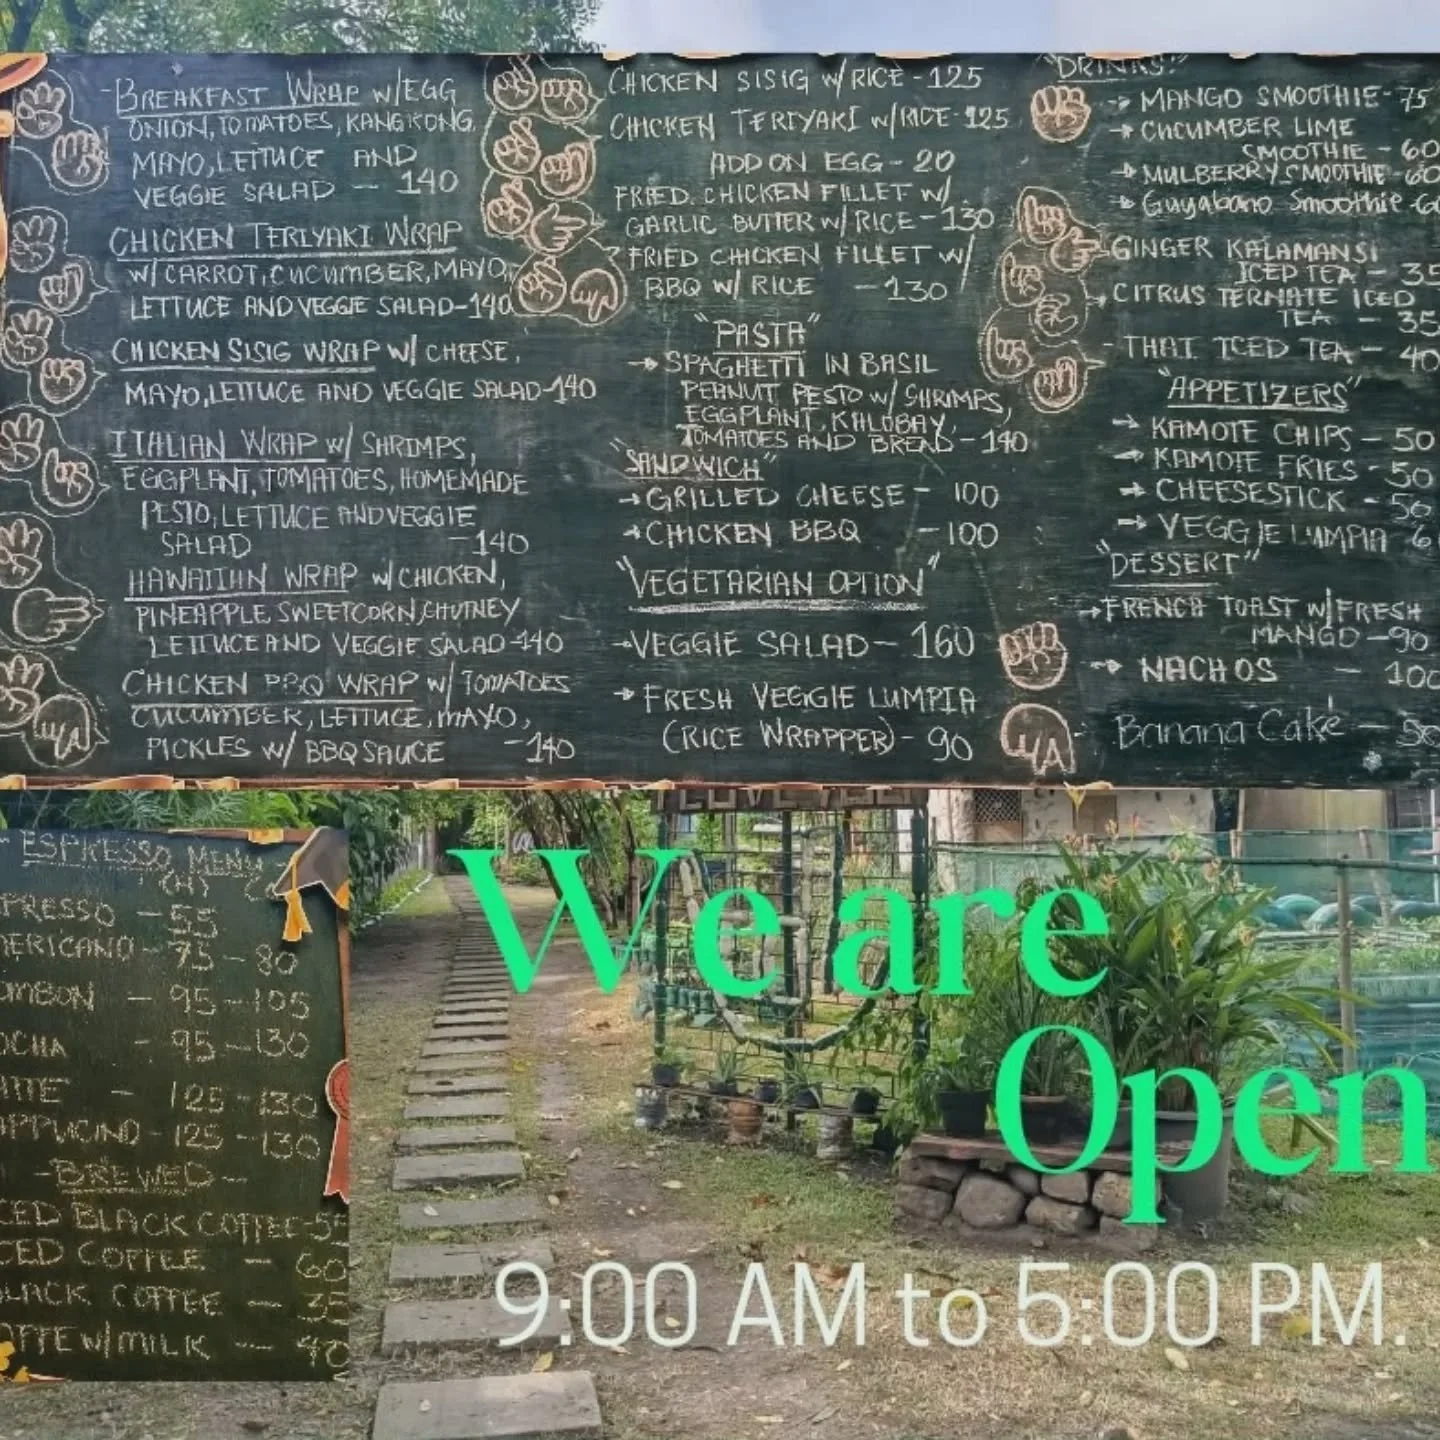 -BREAKFAST WRAP W/EGG
ONION, TOMATOES, KANGKONG,
MAYO, LETTUCE AND
VEGGIE SALAD - 140
CHICKEN TERIYAKI WRAP
W/CARROT, CUCUMBER, MAYO,
LETTUCE AND VEGGIE SALAD-140
CHICKEN SISIG WRAP W/ CHEESE,
MAYO, LETTUCE AND VEGGIE SALAD-140
ITALIAN WRAP W/ SHRIMPS,
EGGPLANT, TOMATOES, HOMEMADE
PESTO, LETTUCE AND VEGGIE
SALAD -140
HAWAIIAN WRAP W/CHICKEN,
PINEAPPLE, SWEETCORN, CHUTNEY
LETTUCE AND VEGGIE SALAD-140
CHICKEN BBQ WRAP W/ TOMATOES
CUCUMBER, LETTUCE, MAYO,
PICKLES W/ BBQ SAUCE -140
CHICKEN SISIG W/RICE -125
CHICKEN TERIYAKI W/RICE-125
ADD ON EGG - 20
FRIED CHICKEN FILLET W/
GARLIC BUTTER W/RICE-130
FRIED CHICKEN FILLET W/
BBQ W/ RICE -130
"PASTA"
→ SPAGHETTI IN BASIL
PEANUT PESTO W/ SHRIMPS,
EGGPLANT, KALABAY,
TOMATOES AND BREAD-140
"SANDWICH"
→ GRILLED CHEESE - 100
→ CHICKEN BBQ -100
"VEGETARIAN OPTION"
→VEGGIE SALAD- 160
→ FRESH VEGGIE LUMPIA
(RICE WRAPPER)- 90
"DRINKS:"
→ MANGO SMOOTHIE-75
→ CUCUMBER LIME
SMOOTHIE - 60
→ MULBERRY SMOOTHIE-60
→ Guyabano Smoothie-6
GINGER KALAMANSI
ICED TEA - 35
CITRUS TERNATE ICED
TEA - 35
-THAI ICED TEA- 40
"APPETIZERS"
→ KAMOTE CHIPS - 50
→ KAMOTE FRIES - 50
→ CHEESESTICK - 50
→ VEGGIE LUMPIA 6
"DESSERT"
→FRENCH TOAST W/FRESH
MANGO -90
→ NACHOS - 100
- Banana Cake - 50
ESPRESSO MENU
(H)
PRESSO - 55
ERICANO- 75 - 80
OMBON - 95-105
OCHA - 95-130
ATTE - 125-130
APPUCINO-125-130
-BREWED--
CED BLACK COFFEE-5
CED COFFEE - 60
LACK COFFEE - 35
OFFEE W/MILK - 40
We are
Open
9:00 AM to 5:00 PM.